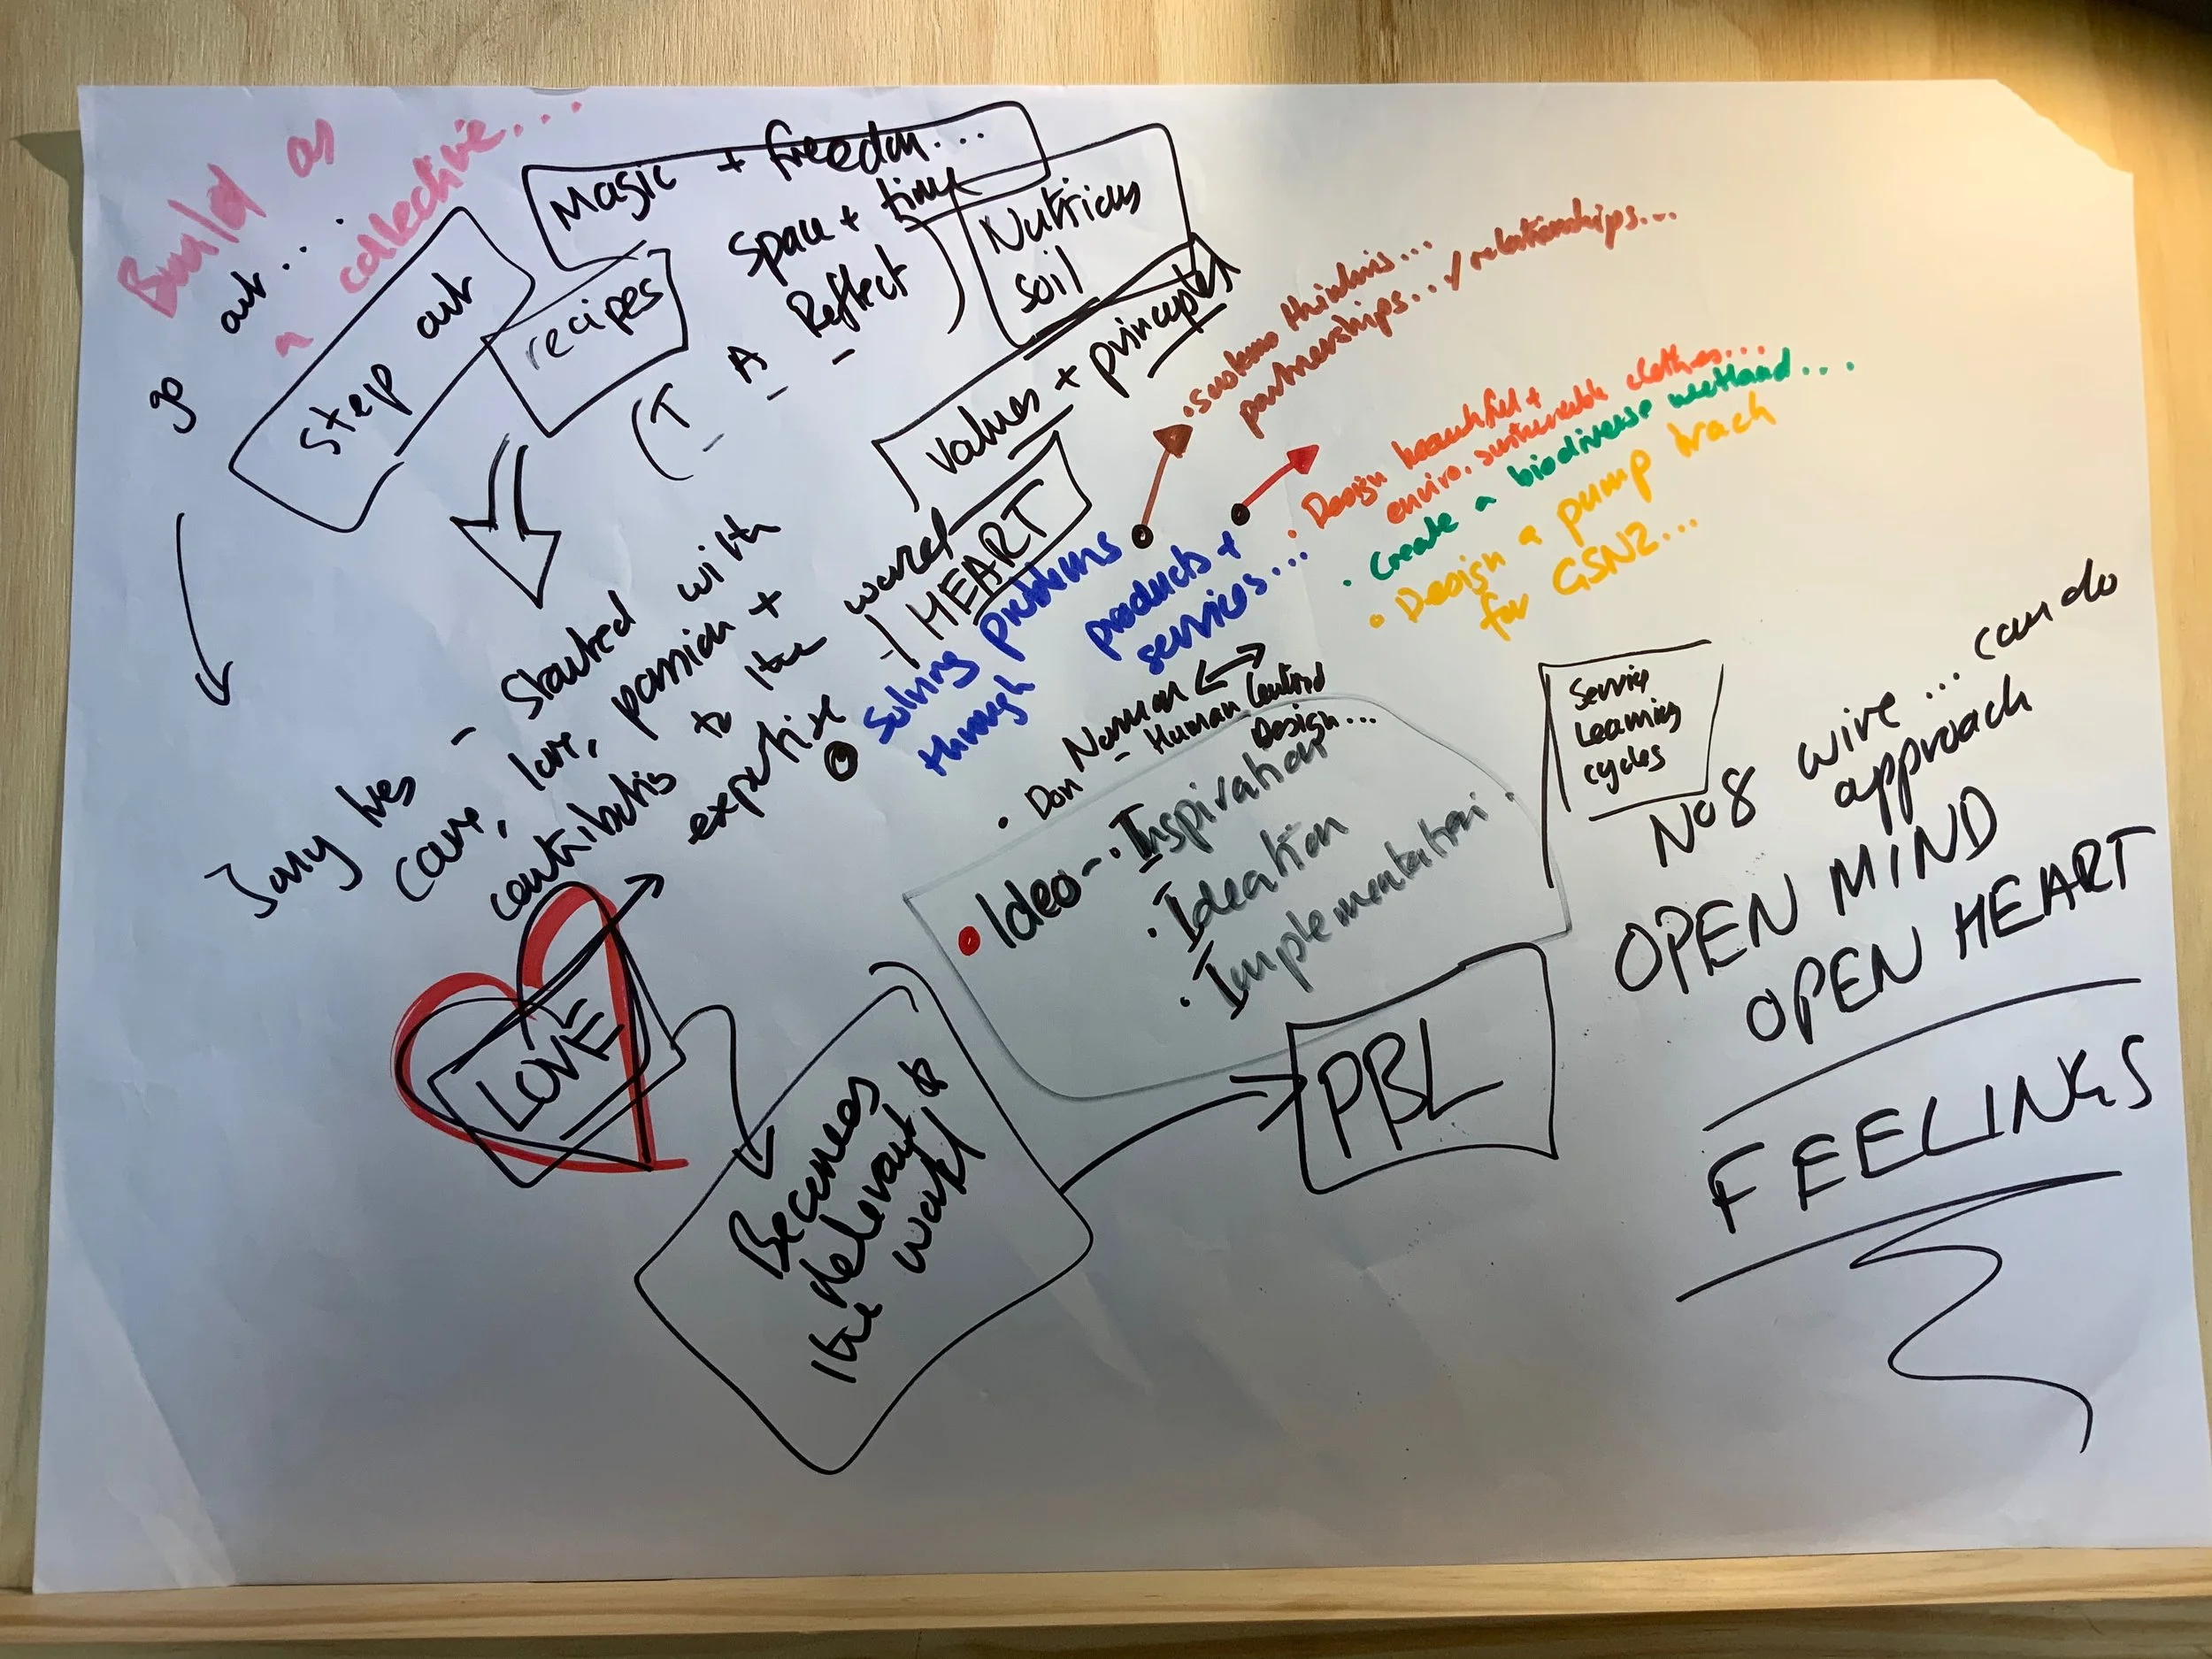 Build as
a collective...
go out...
Step out
recipes
Magic + freedom...
Space + time
(T A Reflect)
Nutricus
soil
values + principles
HEART
Jony Ives - Started with
care, love, passion +
contributes to the world
expertise
LOVE
Becomes
relevant to
the world
PBL
Solving problems
through products +
services...
systems thinking...
partnerships... / relationships...
• Design beautiful +
enviro. sustainable clothes...
• Create a biodiverse wetland...
• Design a pump track
for GSNZ...
• Don Norman
- Human Centred
Design...
• Ideo - • Inspiration
• Ideation
• Implementation
Service
Learning
cycles
No 8 wire... can do
approach
OPEN MIND
OPEN HEART
FEELINGS